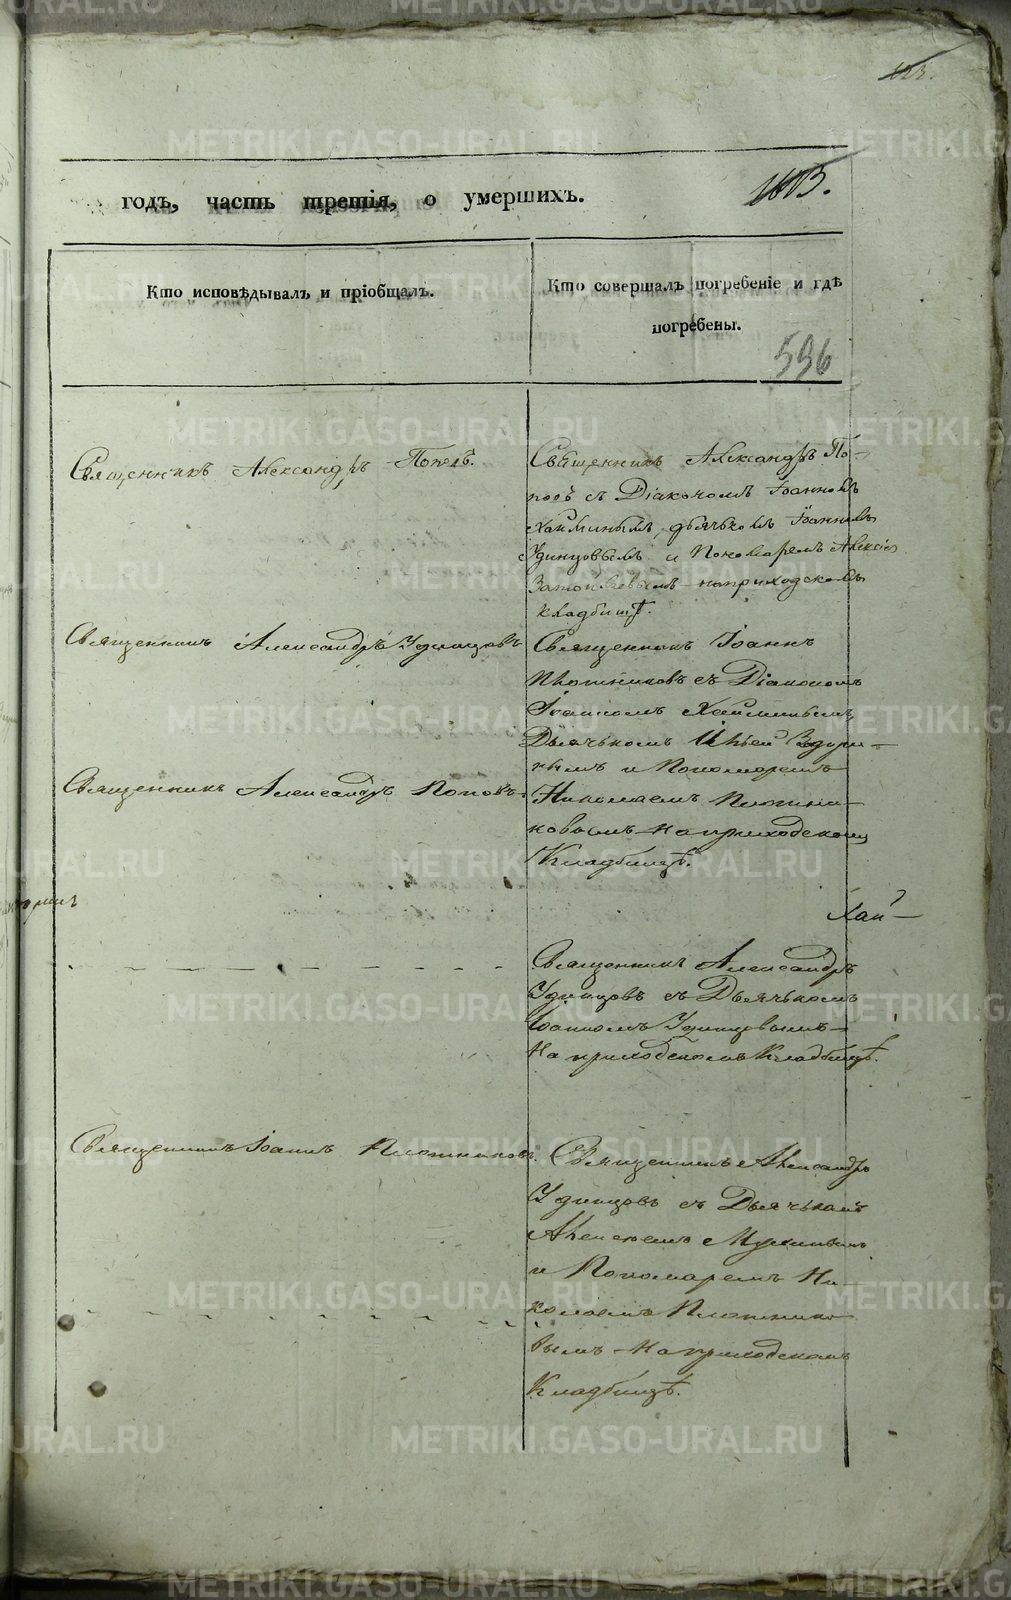 годъ, часть третія, о умершихъ.
Кто исповѣдывалъ и пріобщалъ.
Кто совершалъ погребеніе и гдѣ
погребены.
596
Священникъ Александръ Поповъ.
Священникъ Александръ По-
повъ съ Діакономъ Іоанномъ
Хайминымъ, дьячькомъ Іоанномъ
Удинцовымъ и Пономаремъ Алексіе
на приходскомъ
кладбищѣ.
Священникъ Александръ Удинцовъ
Священникъ Іоаннъ
Плотниковъ съ Діакономъ
Іоанномъ Хайминымъ,
Дьячькомъ Ильей
нымъ и Пономаремъ
Николаемъ Плотни-
ковымъ на приходскомъ
Кладбищѣ.
Священникъ Александръ Поповъ.
Хай-
Священникъ Александръ
Удинцовъ съ Дьячькомъ
Іоанномъ Удинцовымъ
на приходскомъ Кладбищѣ.
Священникъ Іоаннъ Плотниковъ.
Священникъ Александръ
Удинцовъ съ Дьячькомъ
Алексеемъ
и Пономаремъ Ни-
колаемъ Плотнико
вымъ на приходскомъ
Кладбищѣ.
METRIKI.GASO-URAL.RU